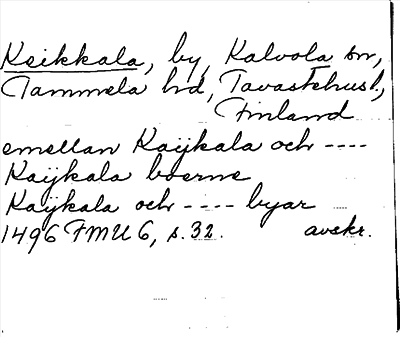 Keikkala, by, Kalvola sn,
Tammela hd, Tavastehusl.,
Finland
emellan Kaÿkala och ----
Kaÿkala boerne
Kaÿkala och ---- byar
1496 FMU 6, s. 32. avskr.